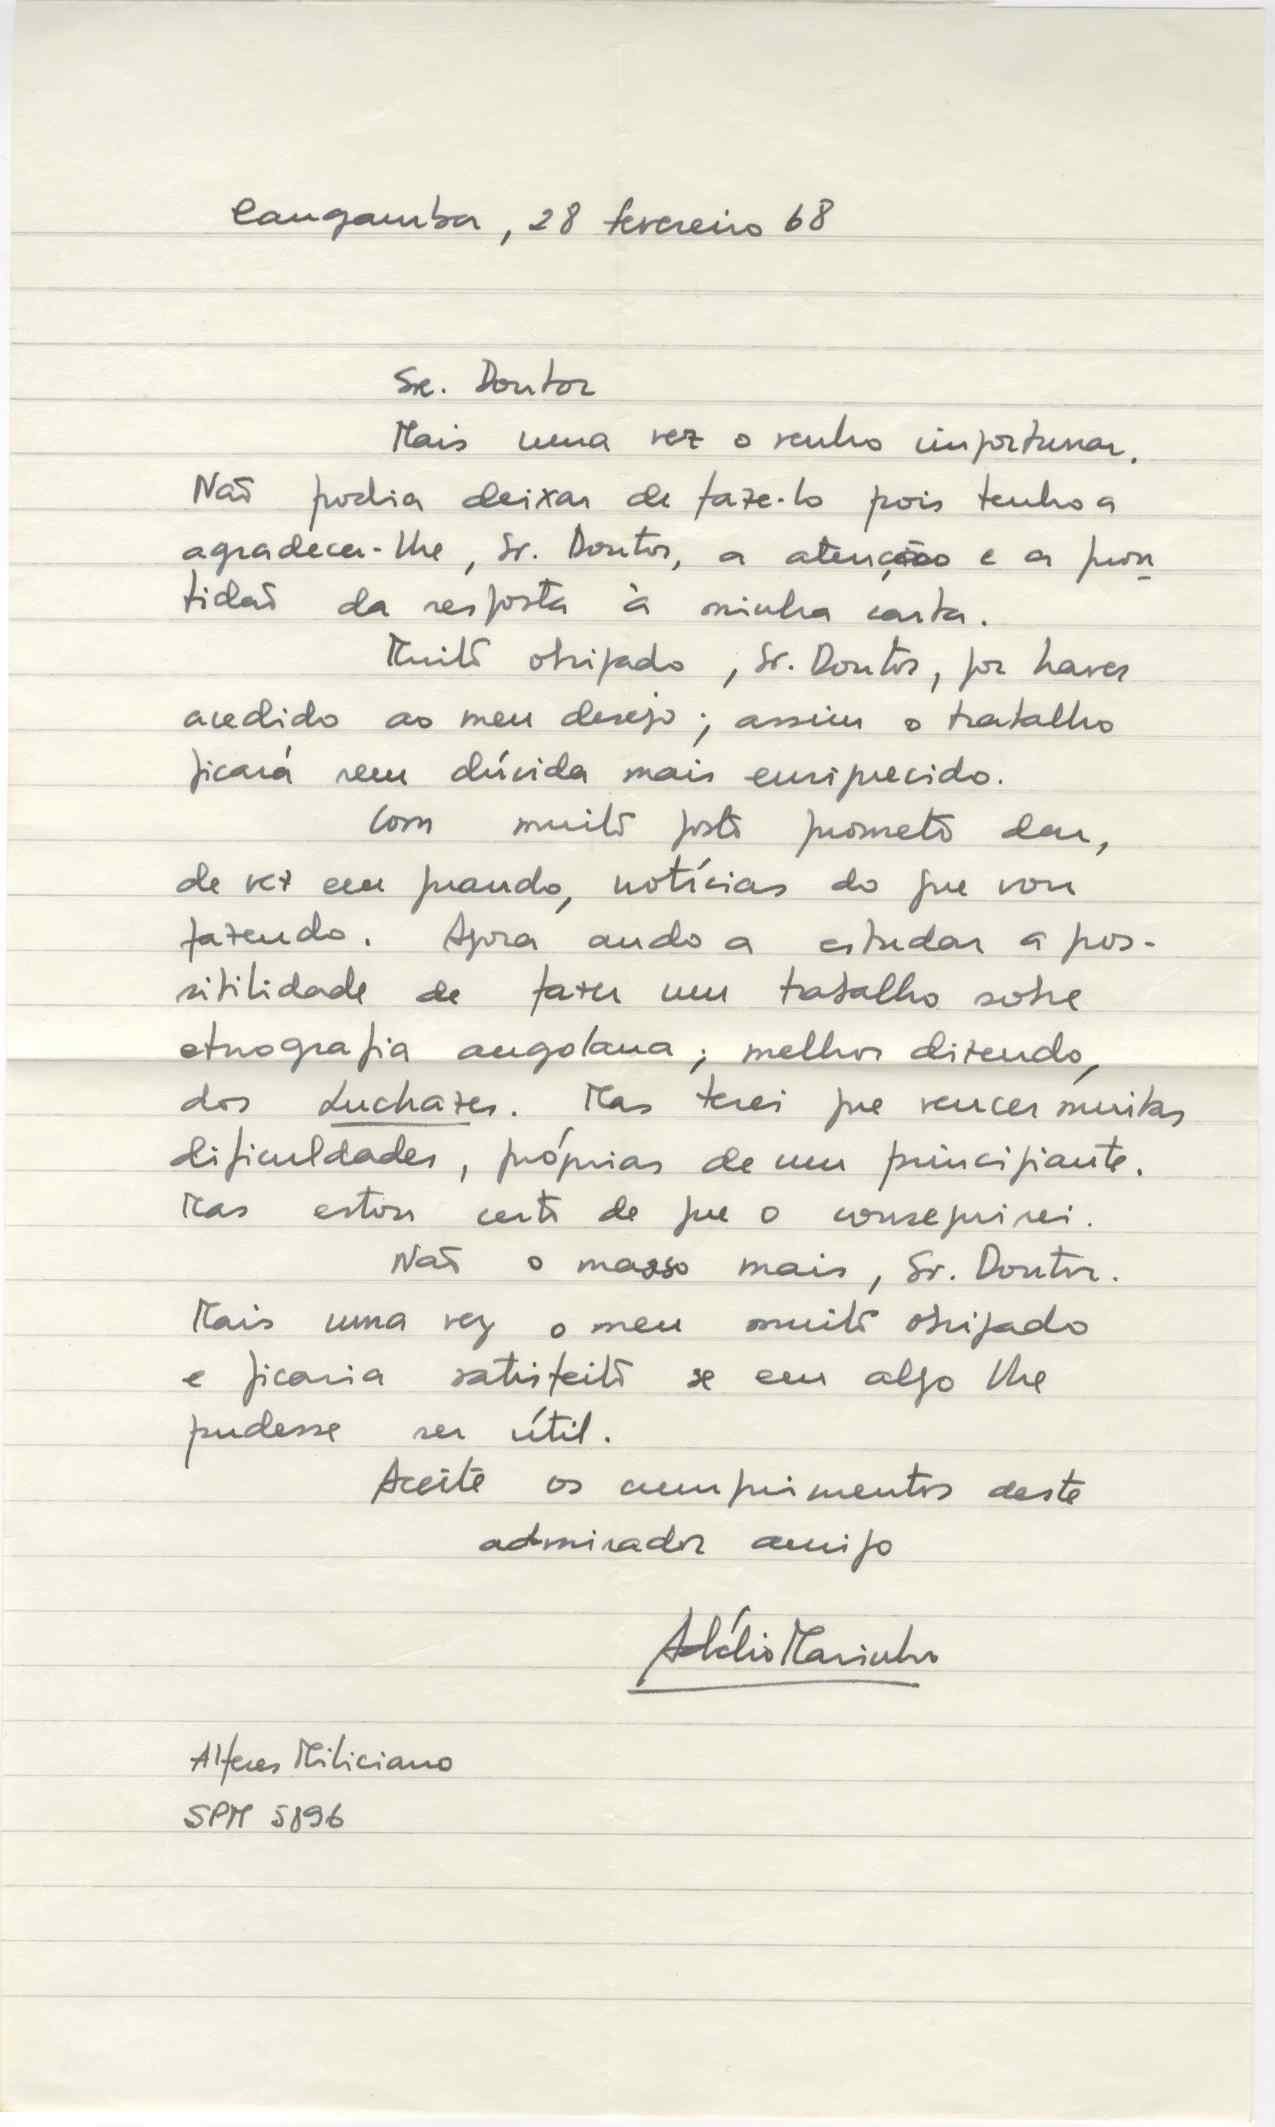 Cangamba, 28 fevereiro 68
Sr. Doutor
Mais uma vez o venho importunar.
Não podia deixar de faze-lo pois tenho a
agradecer-lhe, Sr. Doutor, a atenção e a pron
tidão da resposta à minha carta.
Muito obrigado, Sr. Doutor, por haver
acedido ao meu desejo; assim o trabalho
ficará sem dúvida mais enriquecido.
Com muito gosto prometo dar,
de vez em quando, notícias do que vou
fazendo. Agora ando a estudar a pos-
sibilidade de fazer um trabalho sobre
etnografia angolana; melhor dizendo,
dos Luchazes. Mas terei que vencer muitas
dificuldades, próprias de um principiante.
Mas estou certo de que o conseguirei.
Não o masso mais, Sr. Doutor.
Mais uma vez o meu muito obrigado
e ficaria satisfeito se em algo lhe
pudesse ser útil.
Aceite os cumprimentos deste
admirador amigo
Adélio Marinho
Alferes Miliciano
SPM 5896